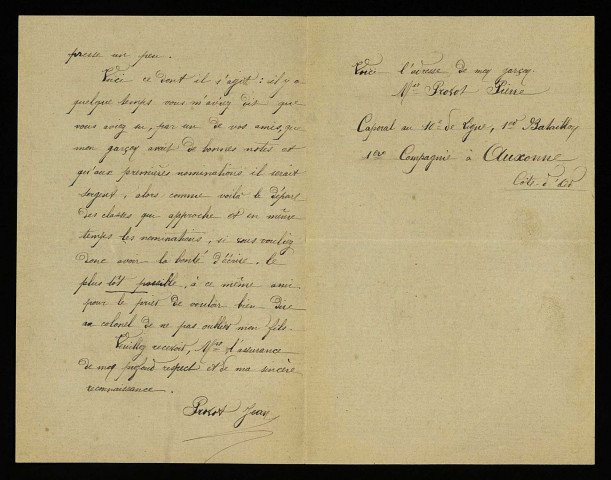 presse un peu.
Voici ce dont il s'agit : il y a
quelque temps vous m'aviez dit que
vous aviez su, par un de vos amis, que
mon garçon avait de bonnes notes et
qu'aux premières nominations il serait
sergent, alors comme voilà le départ
des classes qui approche et en même
temps les nominations, si vous vouliez
donc avoir la bonté d'écrire, le
plus tôt possible, à ce même ami
pour le prier de vouloir bien dire
au colonel de ne pas oublier mon fils.
Veuillez recevoir, Mr l'assurance
de mon profond respect et de ma sincère
reconnaissance.
Prosot Jean
Voici l'adresse de mon garçon.
Mr Prosot Pierre
Caporal au 10e de ligne, 1er Bataillon
1ere Compagnie à Auxonne
Côte-d'Or